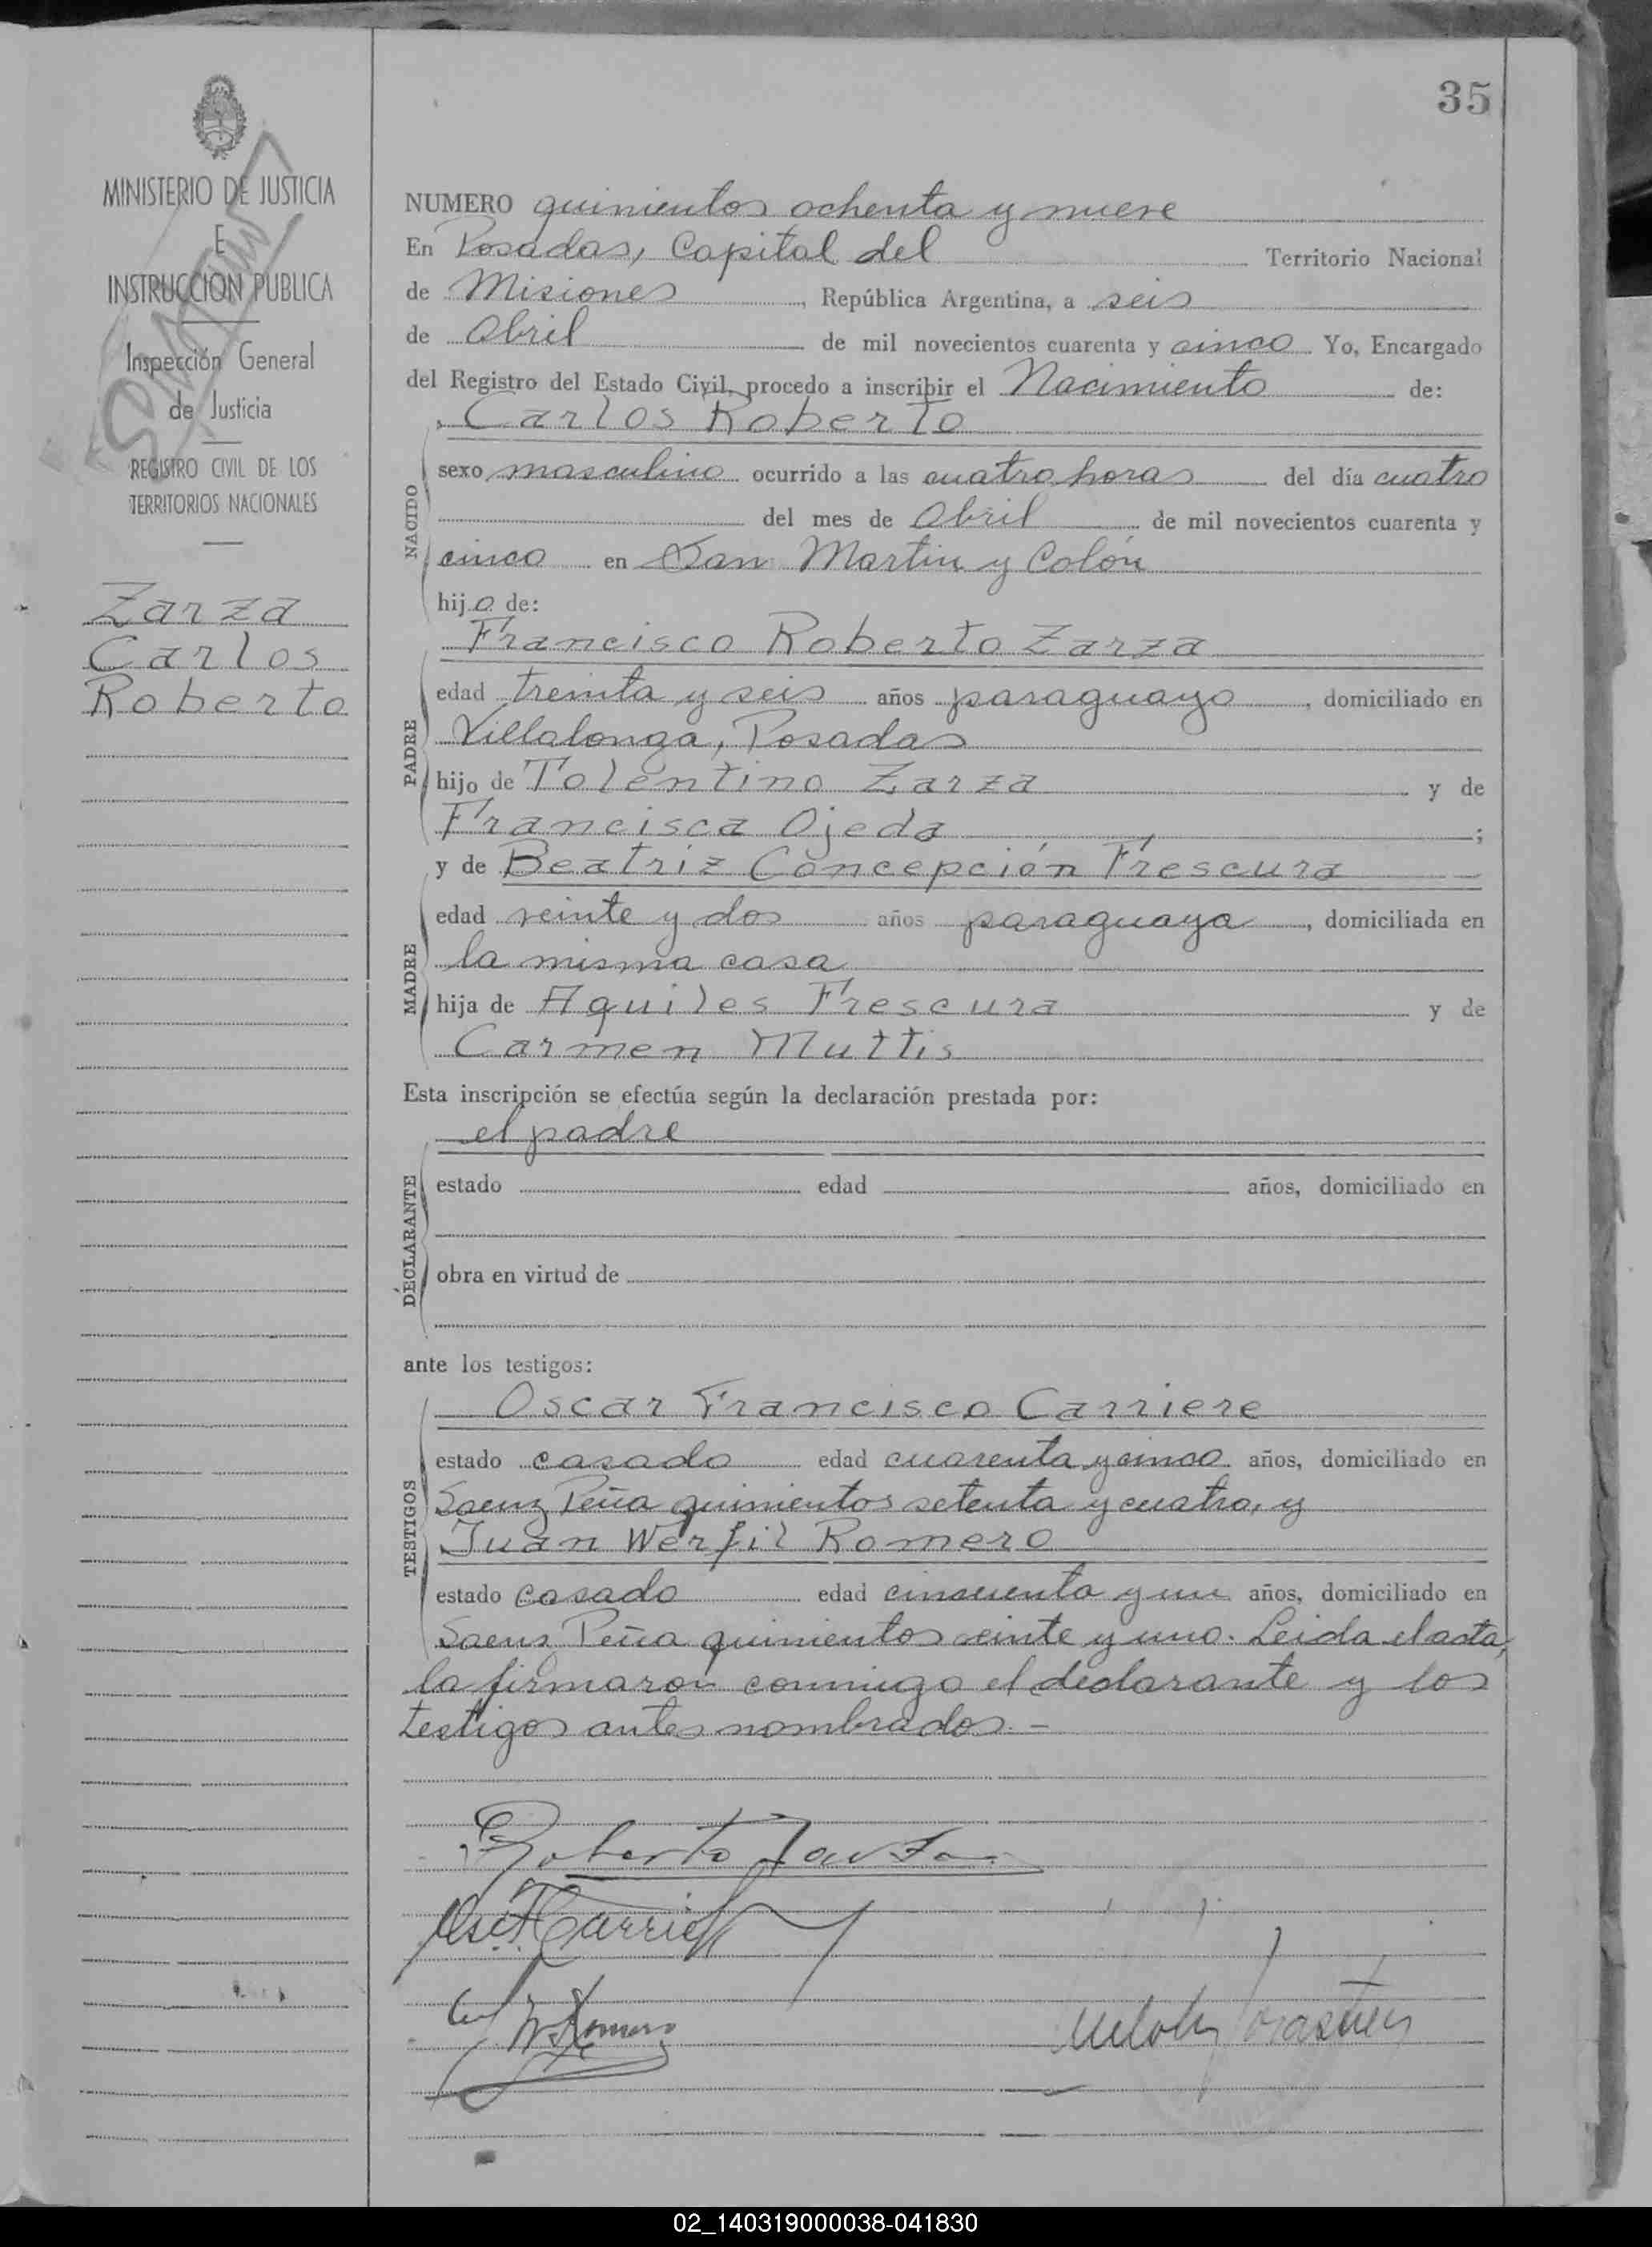 35
MINISTERIO DE JUSTICIA
E
INSTRUCCION PUBLICA
Inspección General
de Justicia
REGISTRO CIVIL DE LOS
TERRITORIOS NACIONALES
Zarza
Carlos
Roberto
NUMERO quinientos ochenta y nueve
En Posadas, Capital del Territorio Nacional
de Misiones, República Argentina, a seis
de Abril de mil novecientos cuarenta y cinco Yo, Encargado
del Registro del Estado Civil, procedo a inscribir el Nacimiento de:
Carlos Roberto
NACIDO
sexo masculino ocurrido a las cuatro horas del día cuatro
del mes de Abril de mil novecientos cuarenta y
cinco en San Martin y Colón
hijo de:
Francisco Roberto Zarza
PADRE
edad treinta y seis años paraguayo, domiciliado en
Villalonga, Posadas
hijo de Tolentino Zarza y de
Francisca Ojeda;
y de Beatriz Concepción Frescura
MADRE
edad veinte y dos años paraguaya, domiciliada en
la misma casa
hija de Aquiles Frescura y de
Carmen Muttis
Esta inscripción se efectúa según la declaración prestada por:
el padre
DECLARANTE
estado edad años, domiciliado en
obra en virtud de
ante los testigos:
Oscar Francisco Carriere
TESTIGOS
estado casado edad cuarenta y cinco años, domiciliado en
Saenz Peña quinientos setenta y cuatro, y
Juan Werfil Romero
estado casado edad cincuenta y un años, domiciliado en
Saenz Peña quinientos veinte y uno. Leida el acta,
la firmaron conmigo el declarante y los
testigos antes nombrados.-
Roberto Zarza
02_140319000038-041830